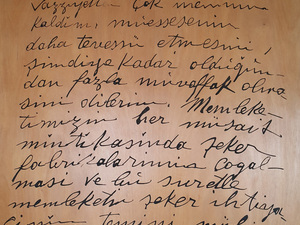 Vaziyetten çok memnun
kaldım, müessesenin
daha tevessü etmesini,
şimdiye kadar olduğun-
dan fazla muvaffak olma
sını dilerim. Memleke
timizin her müsait
mıntıkasında şeker
fabrikalarının çoğal-
ması ve bu suretle
memleketin şeker ihtiya